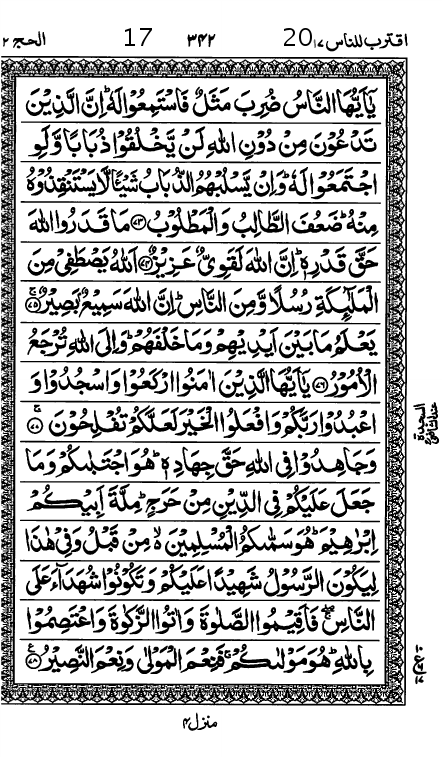 اقترب للناس ۱۷ 20 ۳۴۲ 17 الحج ۲
يٰۤاَيُّهَا النَّاسُ ضُرِبَ مَثَلٌ فَاسْتَمِعُوْا لَهٗ ؕ اِنَّ الَّذِيْنَ
تَدْعُوْنَ مِنْ دُوْنِ اللّٰهِ لَنْ يَّخْلُقُوْا ذُبَابًا وَّلَوِ
اجْتَمَعُوْا لَهٗ ؕ وَاِنْ يَّسْلُبْهُمُ الذُّبَابُ شَيْـًٔا لَّا يَسْتَنْقِذُوْهُ
مِنْهُ ؕ ضَعُفَ الطَّالِبُ وَالْمَطْلُوْبُ ﴿۷۳﴾ مَا قَدَرُوا اللّٰهَ
حَقَّ قَدْرِهٖ ؕ اِنَّ اللّٰهَ لَقَوِىٌّ عَزِيْزٌ ﴿۷۴﴾ اَللّٰهُ يَصْطَفِىْ مِنَ
الْمَلٰٓئِكَةِ رُسُلًا وَّمِنَ النَّاسِ ؕ اِنَّ اللّٰهَ سَمِيْعٌۢ بَصِيْرٌ ﴿۷۵﴾
يَعْلَمُ مَا بَيْنَ اَيْدِيْهِمْ وَمَا خَلْفَهُمْ ؕ وَاِلَى اللّٰهِ تُرْجَعُ
الْاُمُوْرُ ﴿۷۶﴾ يٰۤاَيُّهَا الَّذِيْنَ اٰمَنُوا ارْكَعُوْا وَاسْجُدُوْا وَ
اعْبُدُوْا رَبَّكُمْ وَافْعَلُوا الْخَيْرَ لَعَلَّكُمْ تُفْلِحُوْنَ ﴿۷۷﴾
وَجَاهِدُوْا فِى اللّٰهِ حَقَّ جِهَادِهٖ ؕ هُوَ اجْتَبٰىكُمْ وَمَا
جَعَلَ عَلَيْكُمْ فِى الدِّيْنِ مِنْ حَرَجٍ ؕ مِلَّةَ اَبِيْكُمْ
اِبْرٰهِيْمَ ؕ هُوَ سَمّٰىكُمُ الْمُسْلِمِيْنَ ۙ مِنْ قَبْلُ وَفِىْ هٰذَا
لِيَكُوْنَ الرَّسُوْلُ شَهِيْدًا عَلَيْكُمْ وَتَكُوْنُوْا شُهَدَآءَ عَلَى
النَّاسِ ۖ فَاَقِيْمُوا الصَّلٰوةَ وَاٰتُوا الزَّكٰوةَ وَاعْتَصِمُوْا
بِاللّٰهِ ؕ هُوَ مَوْلٰىكُمْ ۚ فَنِعْمَ الْمَوْلٰى وَنِعْمَ النَّصِيْرُ ﴿۷۸﴾
السجدة
منزل ۴